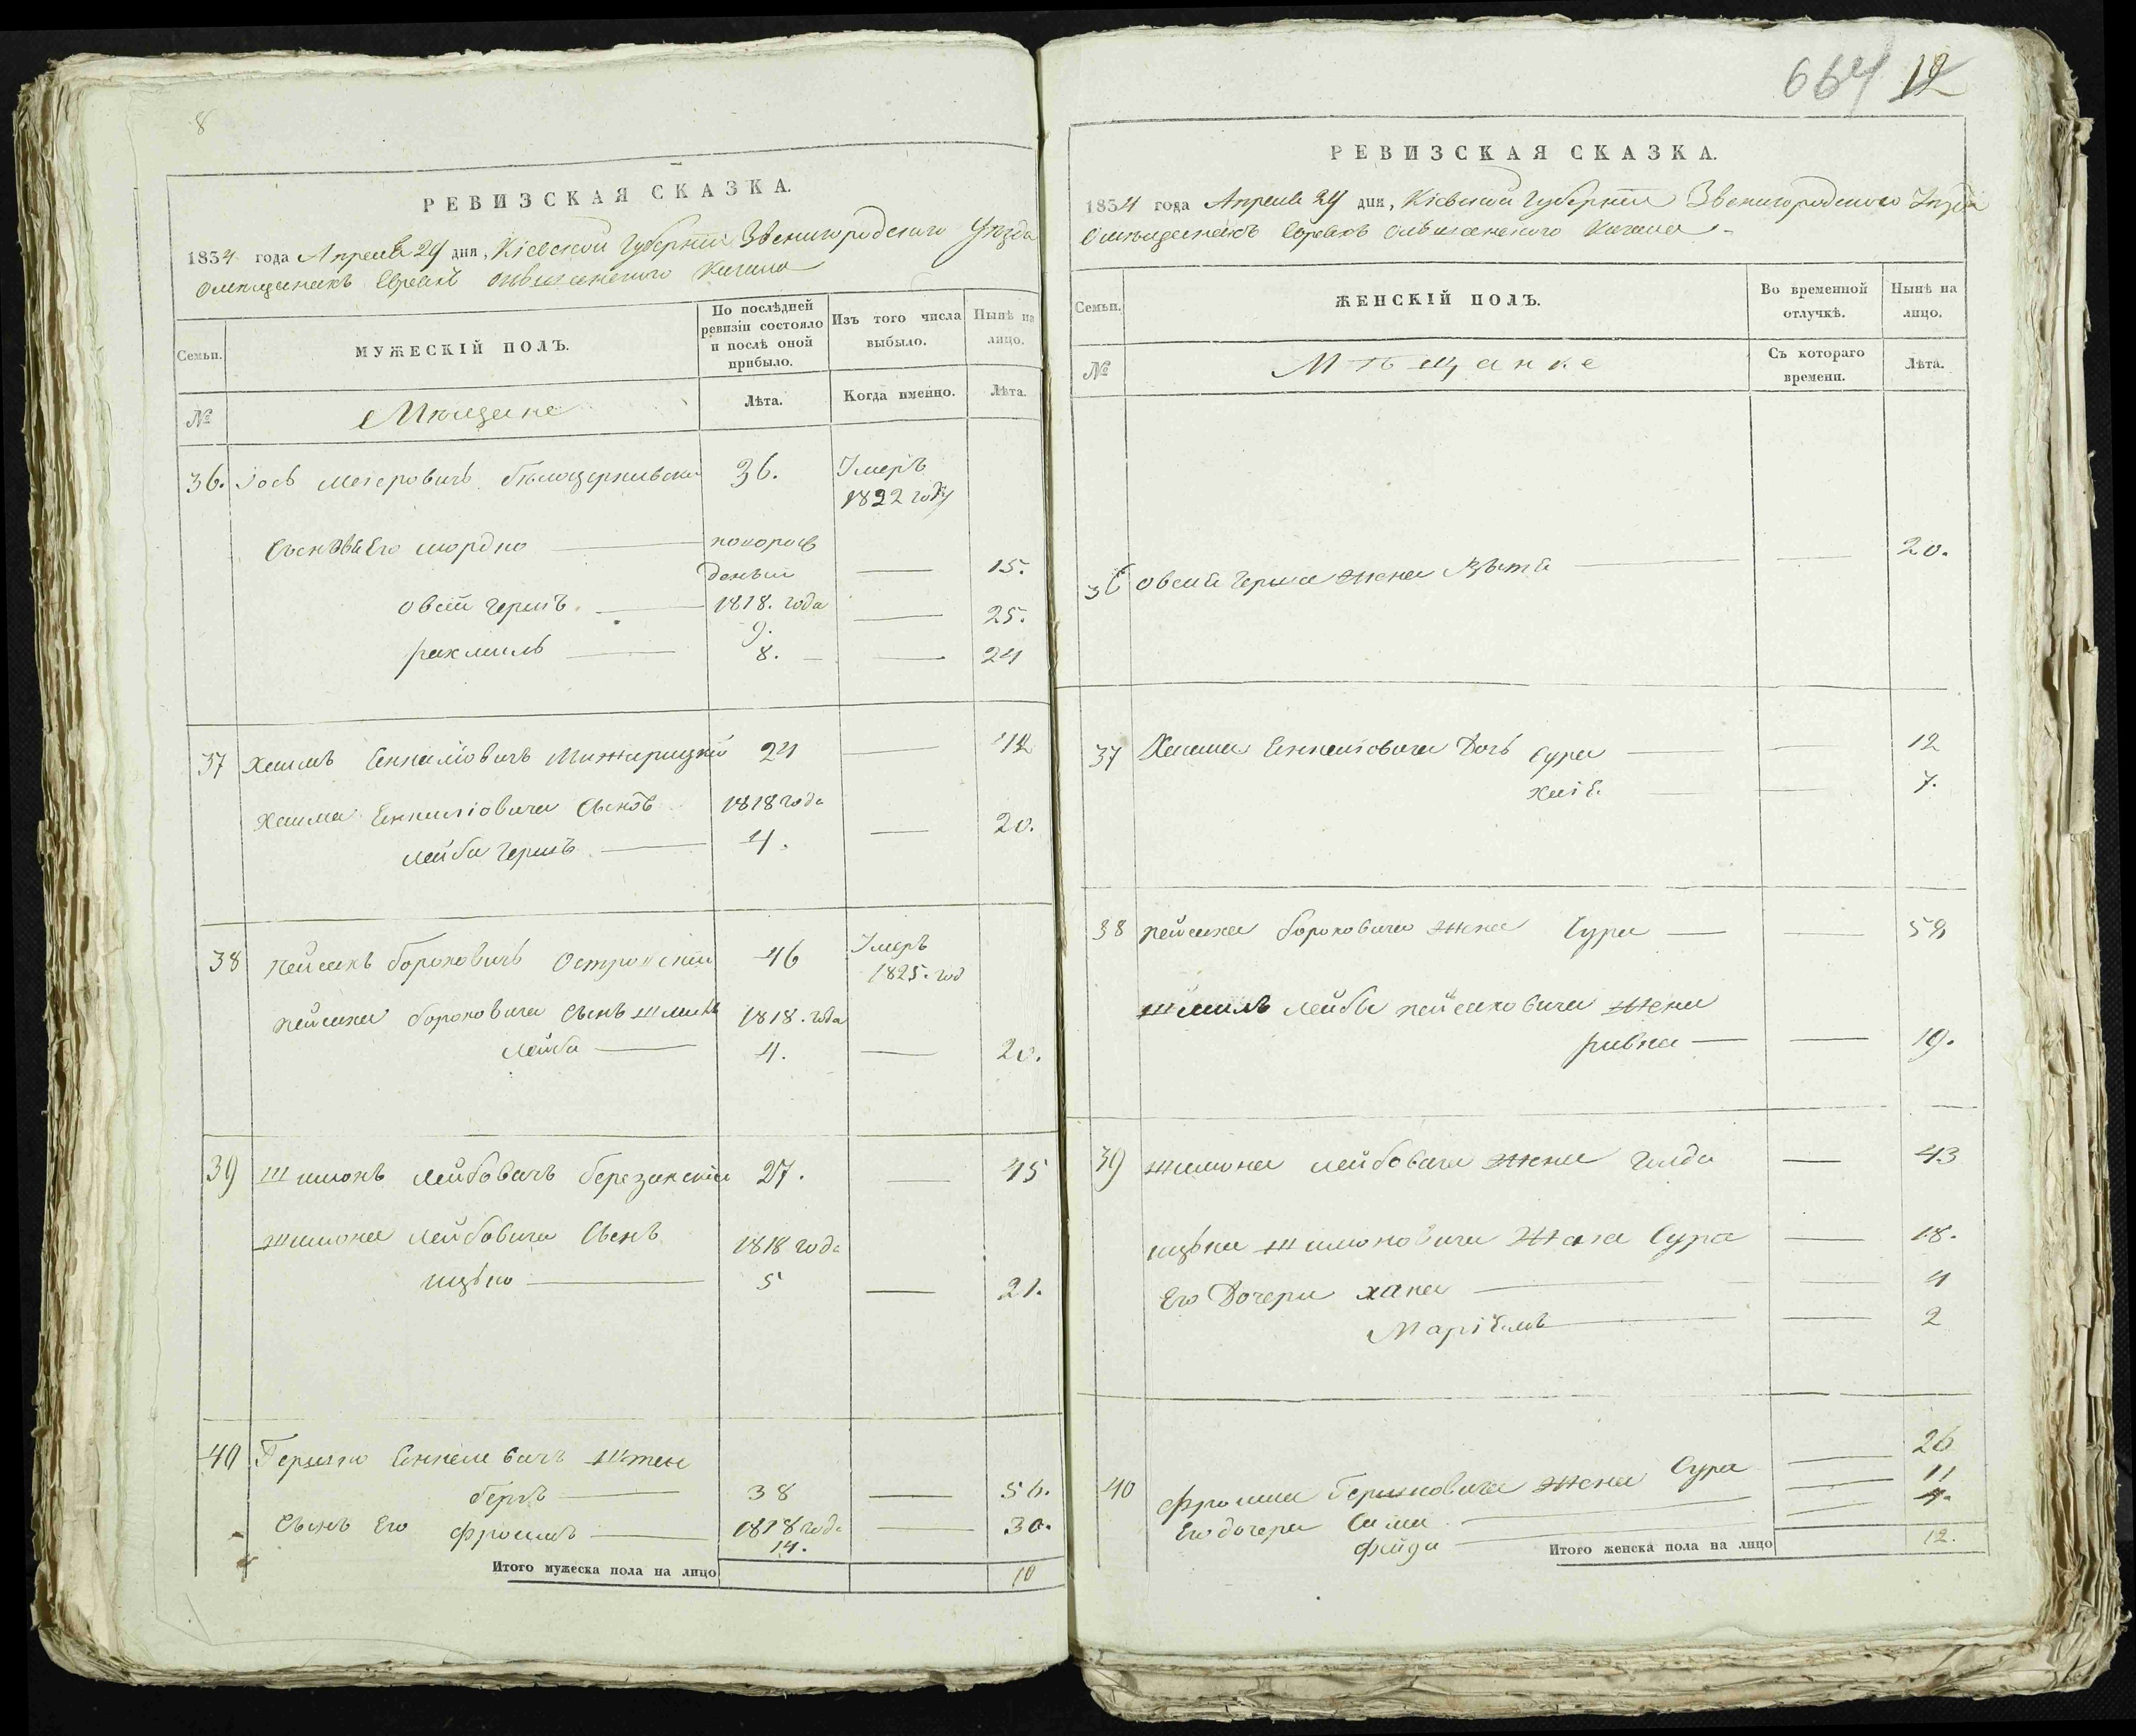 8
РЕВИЗСКАЯ СКАЗКА.
1834 года Апреля 24 дня, Кіевской Губерніи Звенигородского Уезда
О мещанахъ Евреяхъ Ольшанского Кагала
Семьи.
МУЖЕСКІЙ ПОЛЪ.
По послѣдней ревизіи состояло и послѣ оной прибыло.
Изъ того числа выбыло.
Нынѣ на лицо.
№
Мещане
Лѣта.
Когда именно.
Лѣта.
36. Іось Мееровичъ Белоцерковски 36. Умеръ
1822 году
Сыновья Его мордко новорож
денъи 15.
Овсій Гершъ 1818. года 25.
9.
рахмиль 8. 24
37 Хаимъ Янкелiовичъ Мижирицкій 24 42
Хаима Янкелiовича Сынъ 1818 года
Лейба Гершъ 4. 20.
38 пейсахъ Бороховичъ Островскій 46 Умеръ
1825. год
пейсаха Бороховича Сынъ шмиль 1818. года
Лейба 4. 20.
39 Шимонъ Лейбовичъ Березанскій 27. 45
Шимона Лейбовича Сынъ 1818 года
ицько 5 21.
40 Гершко Янкелевичъ Штен
бергъ 38 56.
Сынъ Его Фроимъ 1818 года 30.
14.
Итого мужеска пола на лицо 10
664 12
РЕВИЗСКАЯ СКАЗКА.
1834 года Апреля 24 дня, Кіевской Губерніи Звенигородского Уезда
О мещанахъ Евреяхъ Ольшанского Кагала
Семьи.
ЖЕНСКІЙ ПОЛЪ.
Во временной отлучкѣ.
Нынѣ на лицо.
№
Мѣщанке
Съ котораго времени.
Лѣта.
36 Овсия Герша жена 20.
37 Хаима Янкелiовича Дочь Сура 12
Хаія 7.
38 пейсаха Бороховича жена Сура 58
шмиля Лейбы пейсаховича жена
ривка 19.
39 Шимона Лейбовича жена Голда 43
ицька Шимоновича Жена Сура 18.
Его Дочери хана 4
Маріямъ 2
26
40 Фроима Гершковича жена Сура 11
Его дочери Сима 4.
Фейда
Итого женска пола на лицо 12.